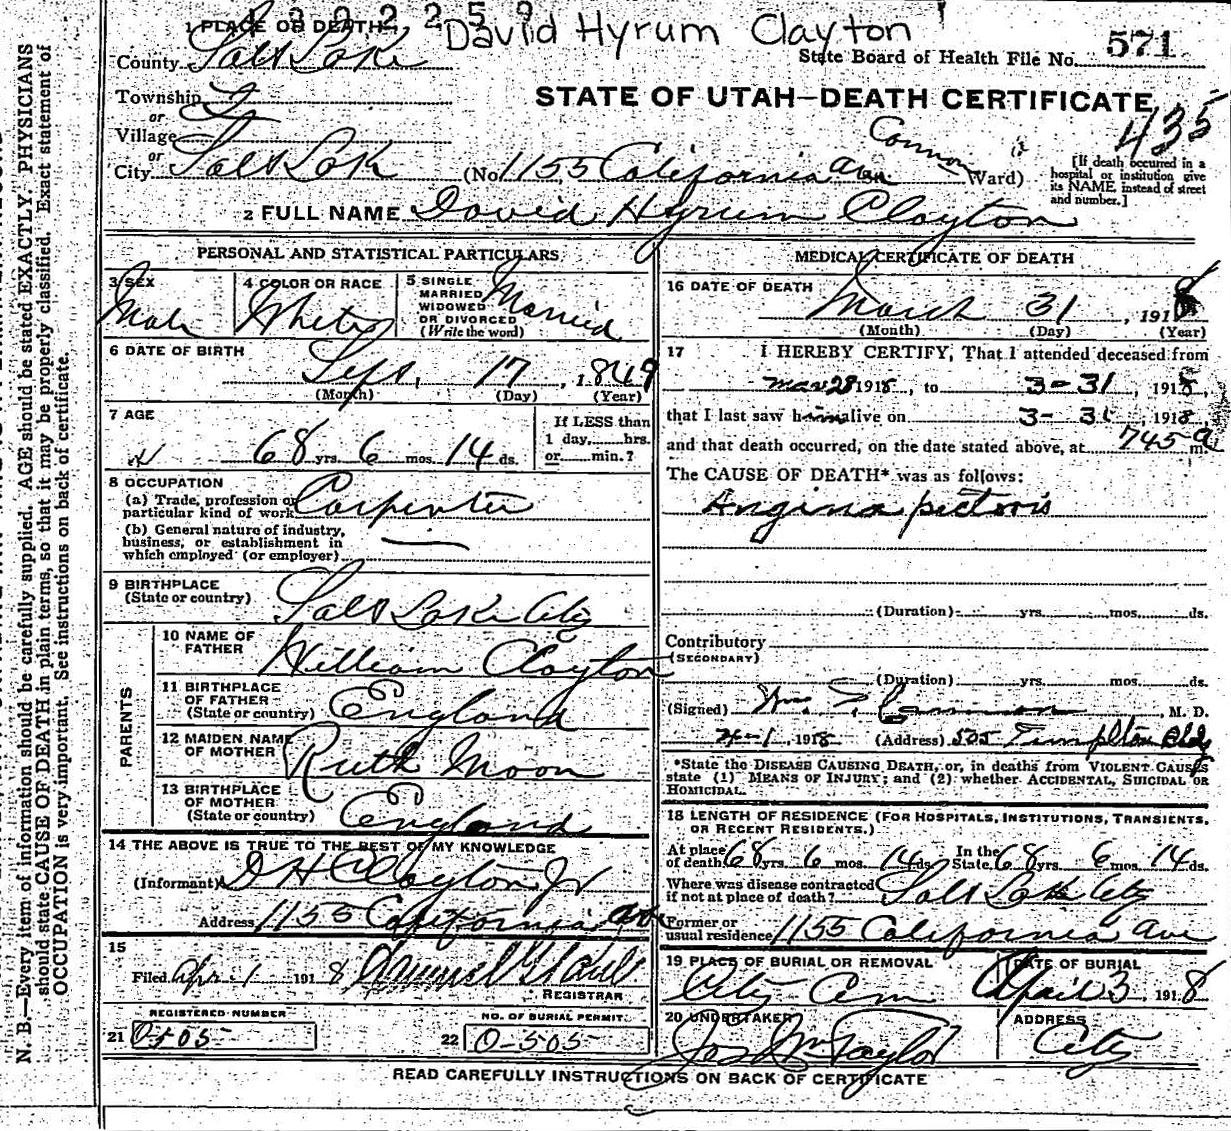 1 3 0 2 2 5 9
David Hyrum Clayton
1 PLACE OF DEATH
County Salt Lake
State Board of Health File No. 571
Township 2
STATE OF UTAH—DEATH CERTIFICATE
435
or
Village
or
City Salt Lake (No. 1155 California ave Cannon Ward)
[If death occurred in a hospital or institution give its NAME instead of street and number.]
2 FULL NAME David Hyrum Clayton
PERSONAL AND STATISTICAL PARTICULARS
3 SEX Male
4 COLOR OR RACE White
5 SINGLE MARRIED WIDOWED OR DIVORCED (Write the word) Married
6 DATE OF BIRTH
Sept. 17, 1849
(Month) (Day) (Year)
7 AGE
68 yrs. 6 mos. 14 ds.
If LESS than 1 day,......hrs. or......min.?
8 OCCUPATION
(a) Trade, profession or particular kind of work Carpenter
(b) General nature of industry, business, or establishment in which employed (or employer) —
9 BIRTHPLACE
(State or country) Salt Lake City
PARENTS
10 NAME OF FATHER William Clayton
11 BIRTHPLACE OF FATHER (State or country) England
12 MAIDEN NAME OF MOTHER Ruth Moon
13 BIRTHPLACE OF MOTHER (State or country) England
14 THE ABOVE IS TRUE TO THE BEST OF MY KNOWLEDGE
(Informant) D H Clayton Jr
Address 1155 California ave
15
Filed Apr. 1 1918
REGISTRAR
REGISTERED NUMBER
21 0-505
NO. OF BURIAL PERMIT.
22 0-505
MEDICAL CERTIFICATE OF DEATH
16 DATE OF DEATH
March 31, 1918
(Month) (Day) (Year)
17 I HEREBY CERTIFY, That I attended deceased from
Mar 28 1918, to 3-31, 1918,
that I last saw him alive on 3-31, 1918
and that death occurred, on the date stated above, at 745 a m.
The CAUSE OF DEATH* was as follows:
Angina pectoris
(Duration) yrs. mos. ds.
Contributory
(SECONDARY)
(Duration) yrs. mos. ds.
(Signed) Wm. T. Cannon, M. D.
4-1, 1918 (Address) 505 Templton Bldg
*State the DISEASE CAUSING DEATH, or, in deaths from VIOLENT CAUSES
state (1) MEANS OF INJURY; and (2) whether ACCIDENTAL, SUICIDAL OR
HOMICIDAL.
18 LENGTH OF RESIDENCE (FOR HOSPITALS, INSTITUTIONS, TRANSIENTS,
OR RECENT RESIDENTS.)
At place of death 68 yrs. 6 mos. 14 ds. In the State 68 yrs. 6 mos. 14 ds.
Where was disease contracted if not at place of death? Salt Lake City
Former or usual residence 1155 California ave
19 PLACE OF BURIAL OR REMOVAL
City Cem
DATE OF BURIAL
April 3 1918
20 UNDERTAKER
Jos Wm Taylor
ADDRESS
City
READ CAREFULLY INSTRUCTIONS ON BACK OF CERTIFICATE
N. B.—Every item of information should be carefully supplied. AGE should be stated EXACTLY. PHYSICIANS
should state CAUSE OF DEATH in plain terms, so that it may be properly classified. Exact statement of
OCCUPATION is very important. See instructions on back of certificate.